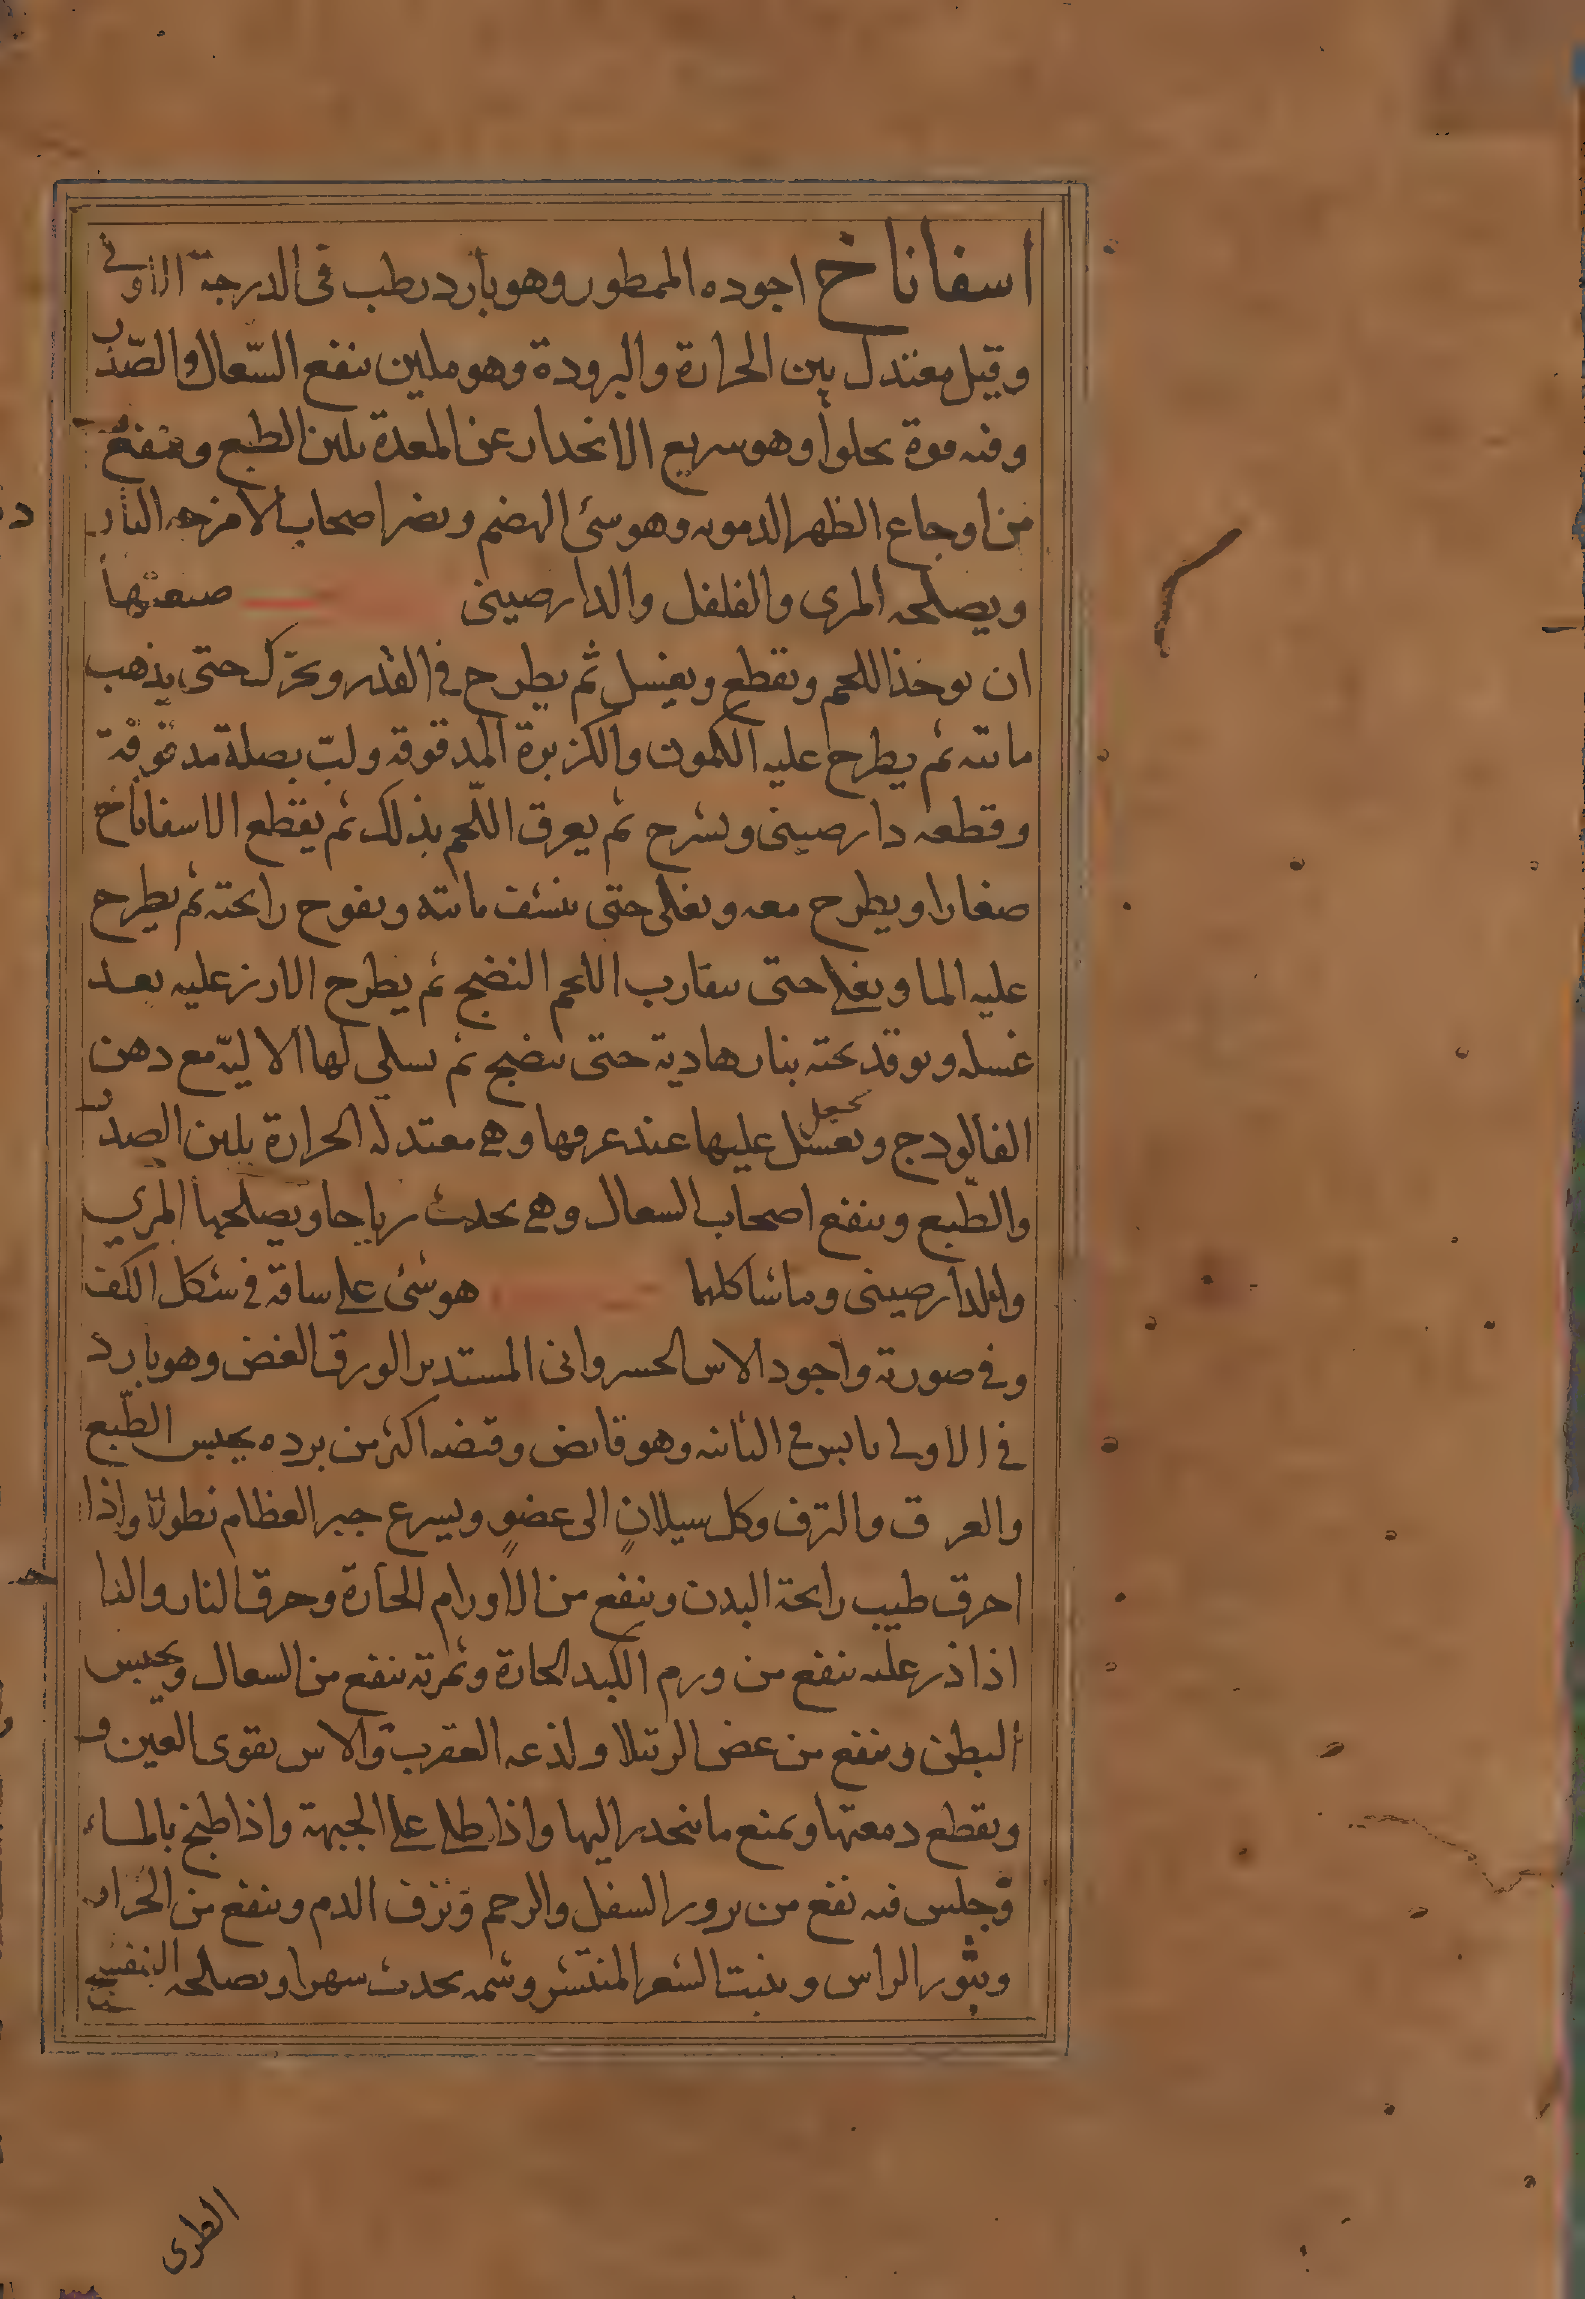 اسفاناخ اجوده الممطور وهو بارد رطب في الدرجة الاولى
وقيل معتدل بين الحرارة والبرودة وهو ملين ينفع السّعال والصّدر
وفيه قوة يجلوا وهو سريع الانحدار عن المعدة يلين الطبع وينفع
من اوجاع الظهر الدمويه وهو سئ الهضم ويضر اصحاب الامزجه البارد
ويصلحه المرى والفلفل والدارصينى صنعتها
ان يوخذ اللحم ويقطع ويغسل ثم يطرح في القدر ويحرّك حتى يذهب
مائته ثم يطرح عليه الكمون والكزبرة المدقوقه ولبّ بصلة مدقوقة
وقطعه دارصينى وشرح ثم يعرق اللّحم بذلك ثم يقطع الاسفاناخ
صغارا ويطرح معه ويغلى حتى ينشف مائته ويفوح رايحته ثم يطرح
عليه الما ويغلى حتى يقارب اللحم النضج ثم يطرح الارز عليه بعد
غسله ويوقد تحته بنار هادية حتى ينضج ثم يسلى لها الالية مع دهن
الفالودج ويجعل عليها عند غرفها وهي معتدله الحرارة يلين الصدر
والطّبع وينفع اصحاب السعال وهي يحدث رياحا ويصلحها المري
والدارصينى وما شاكلهما هو شئ على ساقه في شكل الكف
وفي صورته واجود الاس الخسروانى المستدير الورق الغض وهو بارد
في الاولى يابس في الثانيه وهو قابض وقبضه اكثر من برده يحبس الطّبع
والعرق والنزف وكل سيلانٍ الى عضوٍ ويسرع جبر العظام نطولا واذا
احرق طيب رايحة البدن وينفع من الاورام الحارة وحرق النار والنا
اذا ذر عليه ينفع من ورم الكبد الحارة وثمرته ينفع من السعال ويحبس
البطن وينفع من عض الرتيلا ولذعه العقرب والاس يقوى العين و
ويقطع دمعتها ويمنع ما ينحدر اليها واذا طلى على الجبهة واذا طبخ بالماء
وجلس فيه نفع من برور السفل والرحم ونزف الدم وينفع من الحزاز
وبثور الراس وينبت الشعر المنتشر وشمه يحدث سهرا ويصلحه البنفسج
الطرى